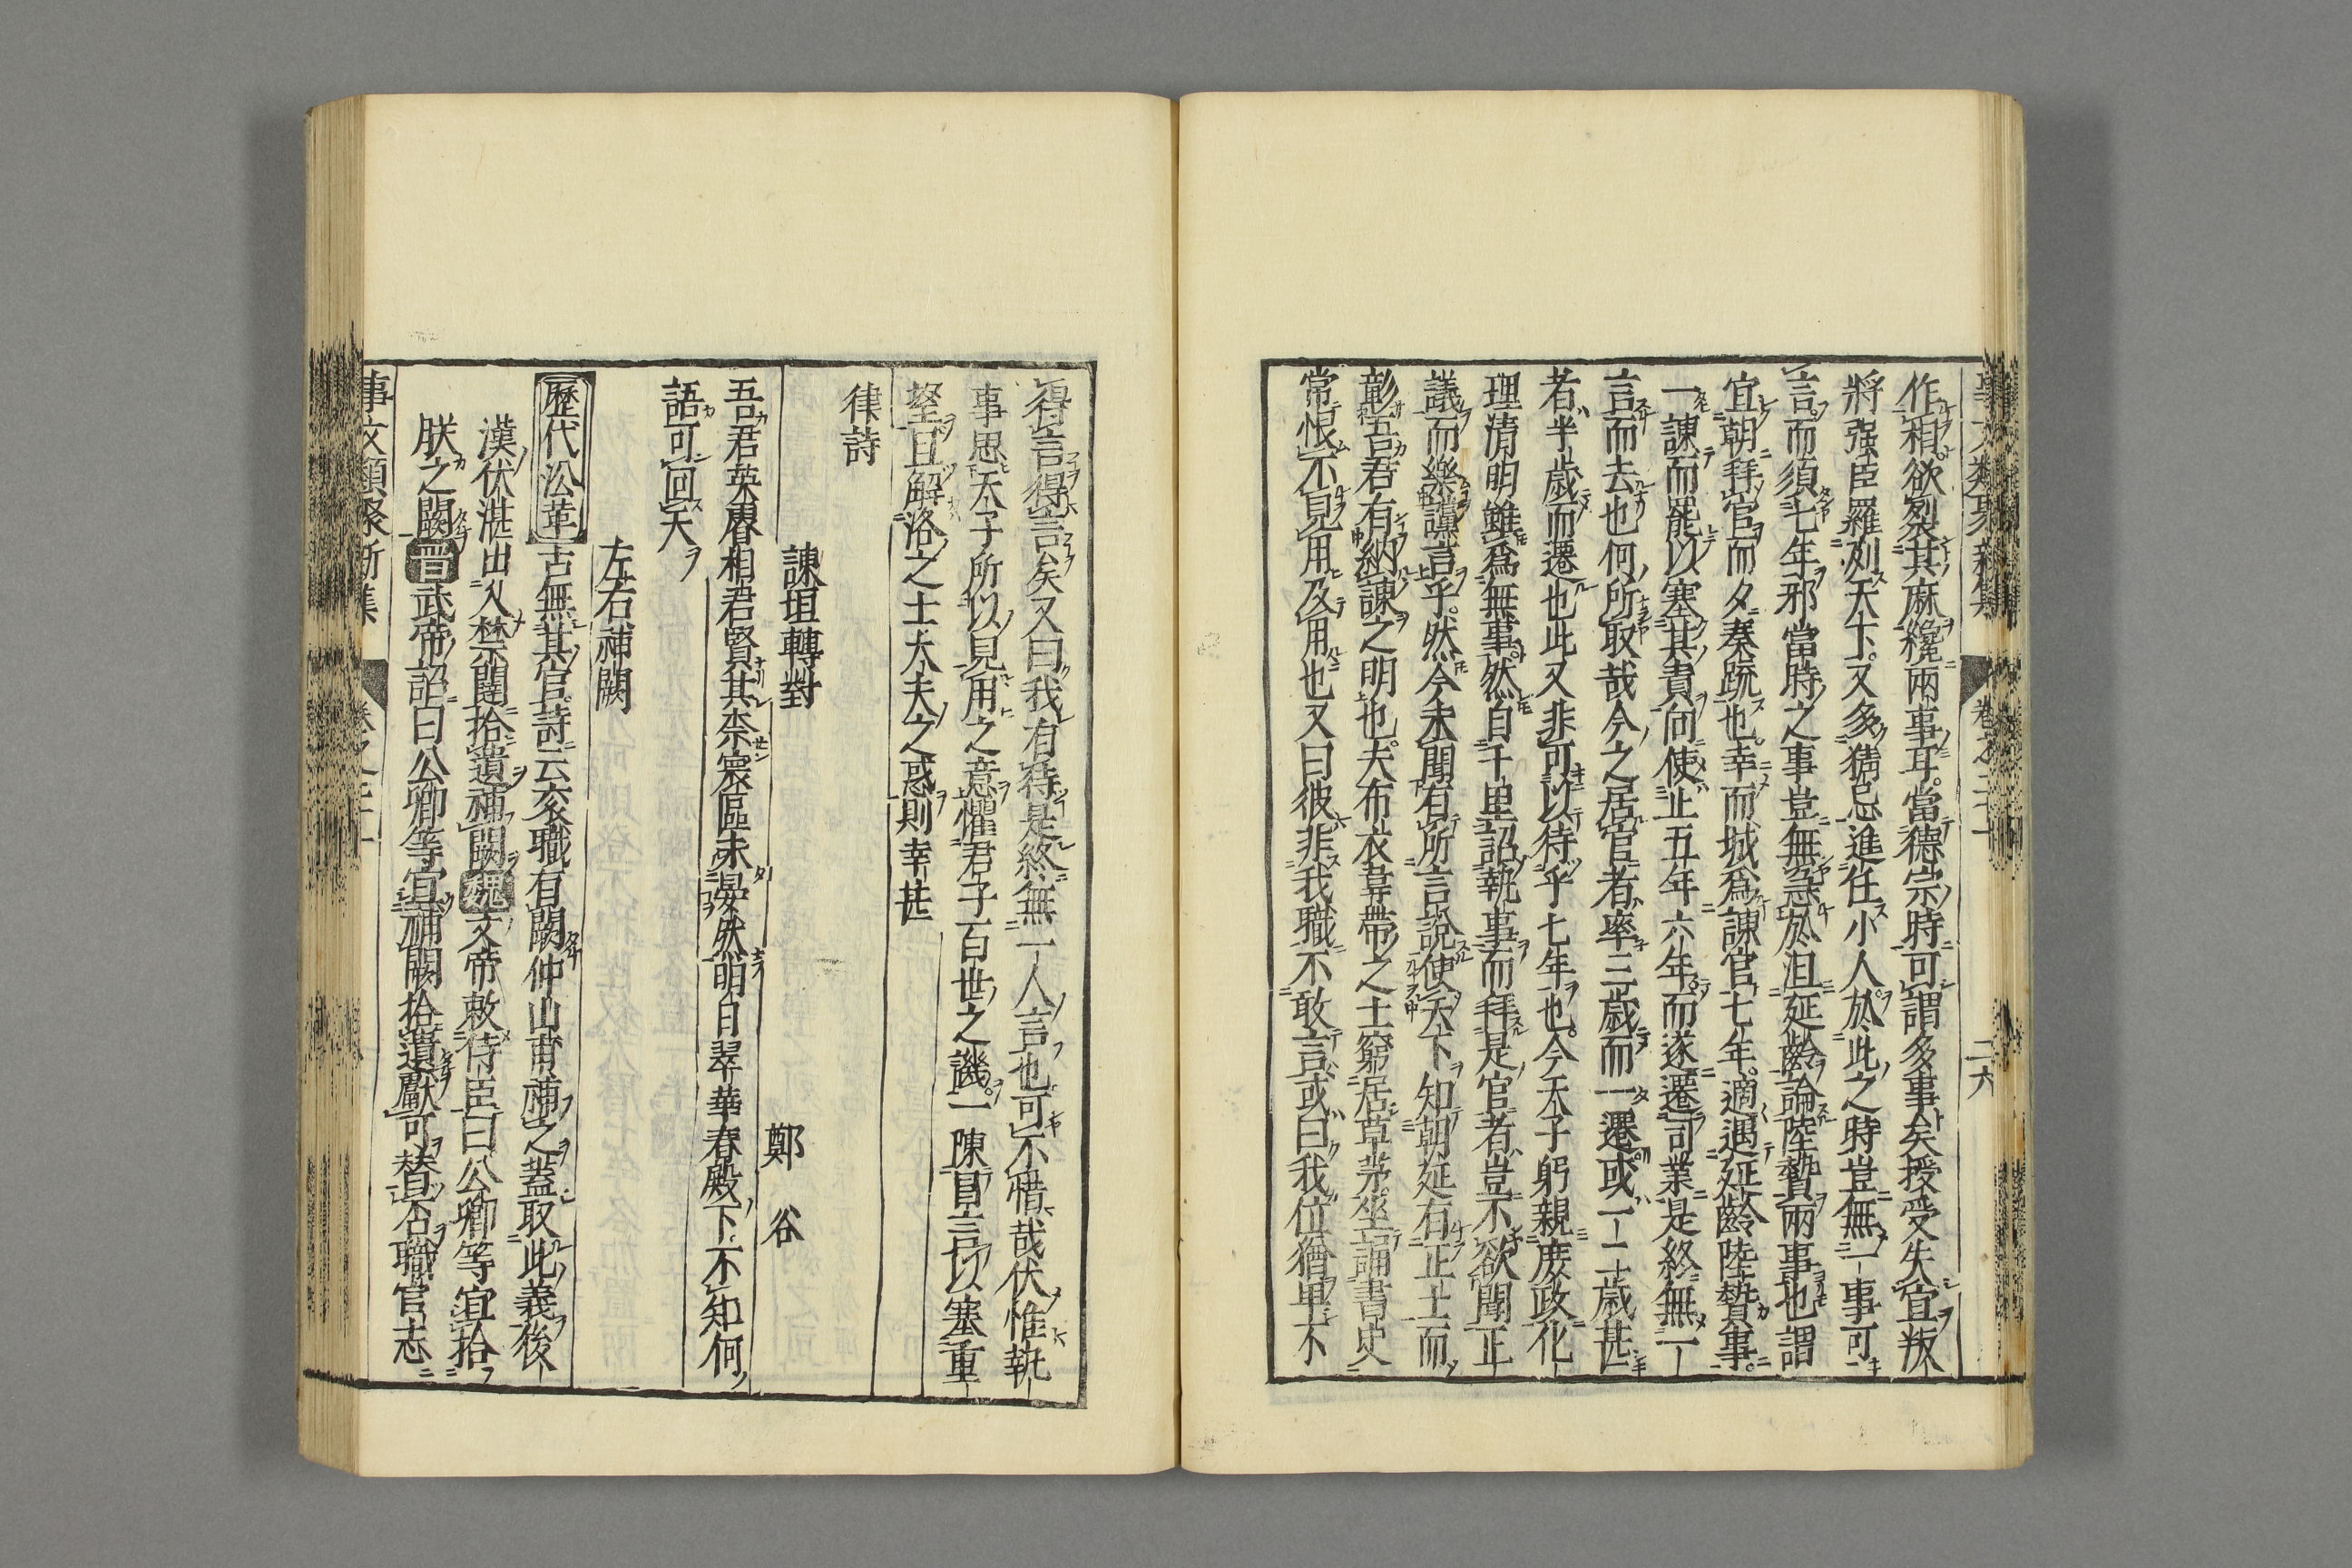 作相欲裂其麻纔兩事耳當德宗時可謂多事矣授受失宜叛
將强臣羅列天下又多猜忌進任小人於此之時豈無一事可
言而須七年邪當時之事豈無急於沮延齡論陸贄兩事也謂
宜朝拜官而夕奏疏也幸而城爲諫官七年適遇延齡陸贄事
一諫而罷以塞其責向使止五年六年而遂遷司業是終無一
言而去也何所取哉今之居官者率三歲而一遷或一二歲甚
者半歲而遷也此又非可以待乎七年也今天子躬親庶政化
理清明雖爲無事然自千里詔執事而拜是官者豈不欲聞正
議而樂讜言乎然今未聞有所言說使天下知朝廷有正士而
彰吾君有納諫之明也夫布衣韋帶之士窮居草茅坐誦書史
常恨不見用及用也又曰彼非我職不敢言或曰我位猶卑不
得言得言矣又曰我有待是終無一人言也可不惜哉伏惟執
事思天子所以見用之意懼君子百世之譏一陳昌言以塞重
望且解洛之士大夫之惑則幸甚
律詩
諫垣轉對　鄭谷
吾君英睿相君賢其柰寰區未晏然明日翠華春殿下不知何
語可回天
左右補闕
歷代沿革 古無其官詩云袞職有闕仲山甫補之蓋取此義後
漢伏湛出入禁闥拾遺補闕魏文帝敕侍臣曰公卿等宜拾
朕之闕晉武帝詔曰公卿等宜補闕拾遺獻可替否職官志
事文類聚新集　卷之二十一
二六